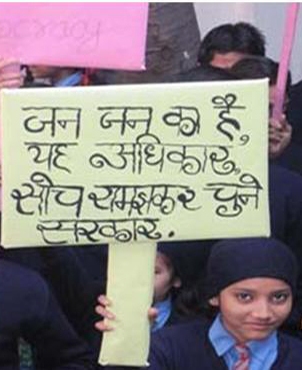 ocracy
जन जन का है,
यह अधिकार,
सोच समझकर चुने
सरकार.